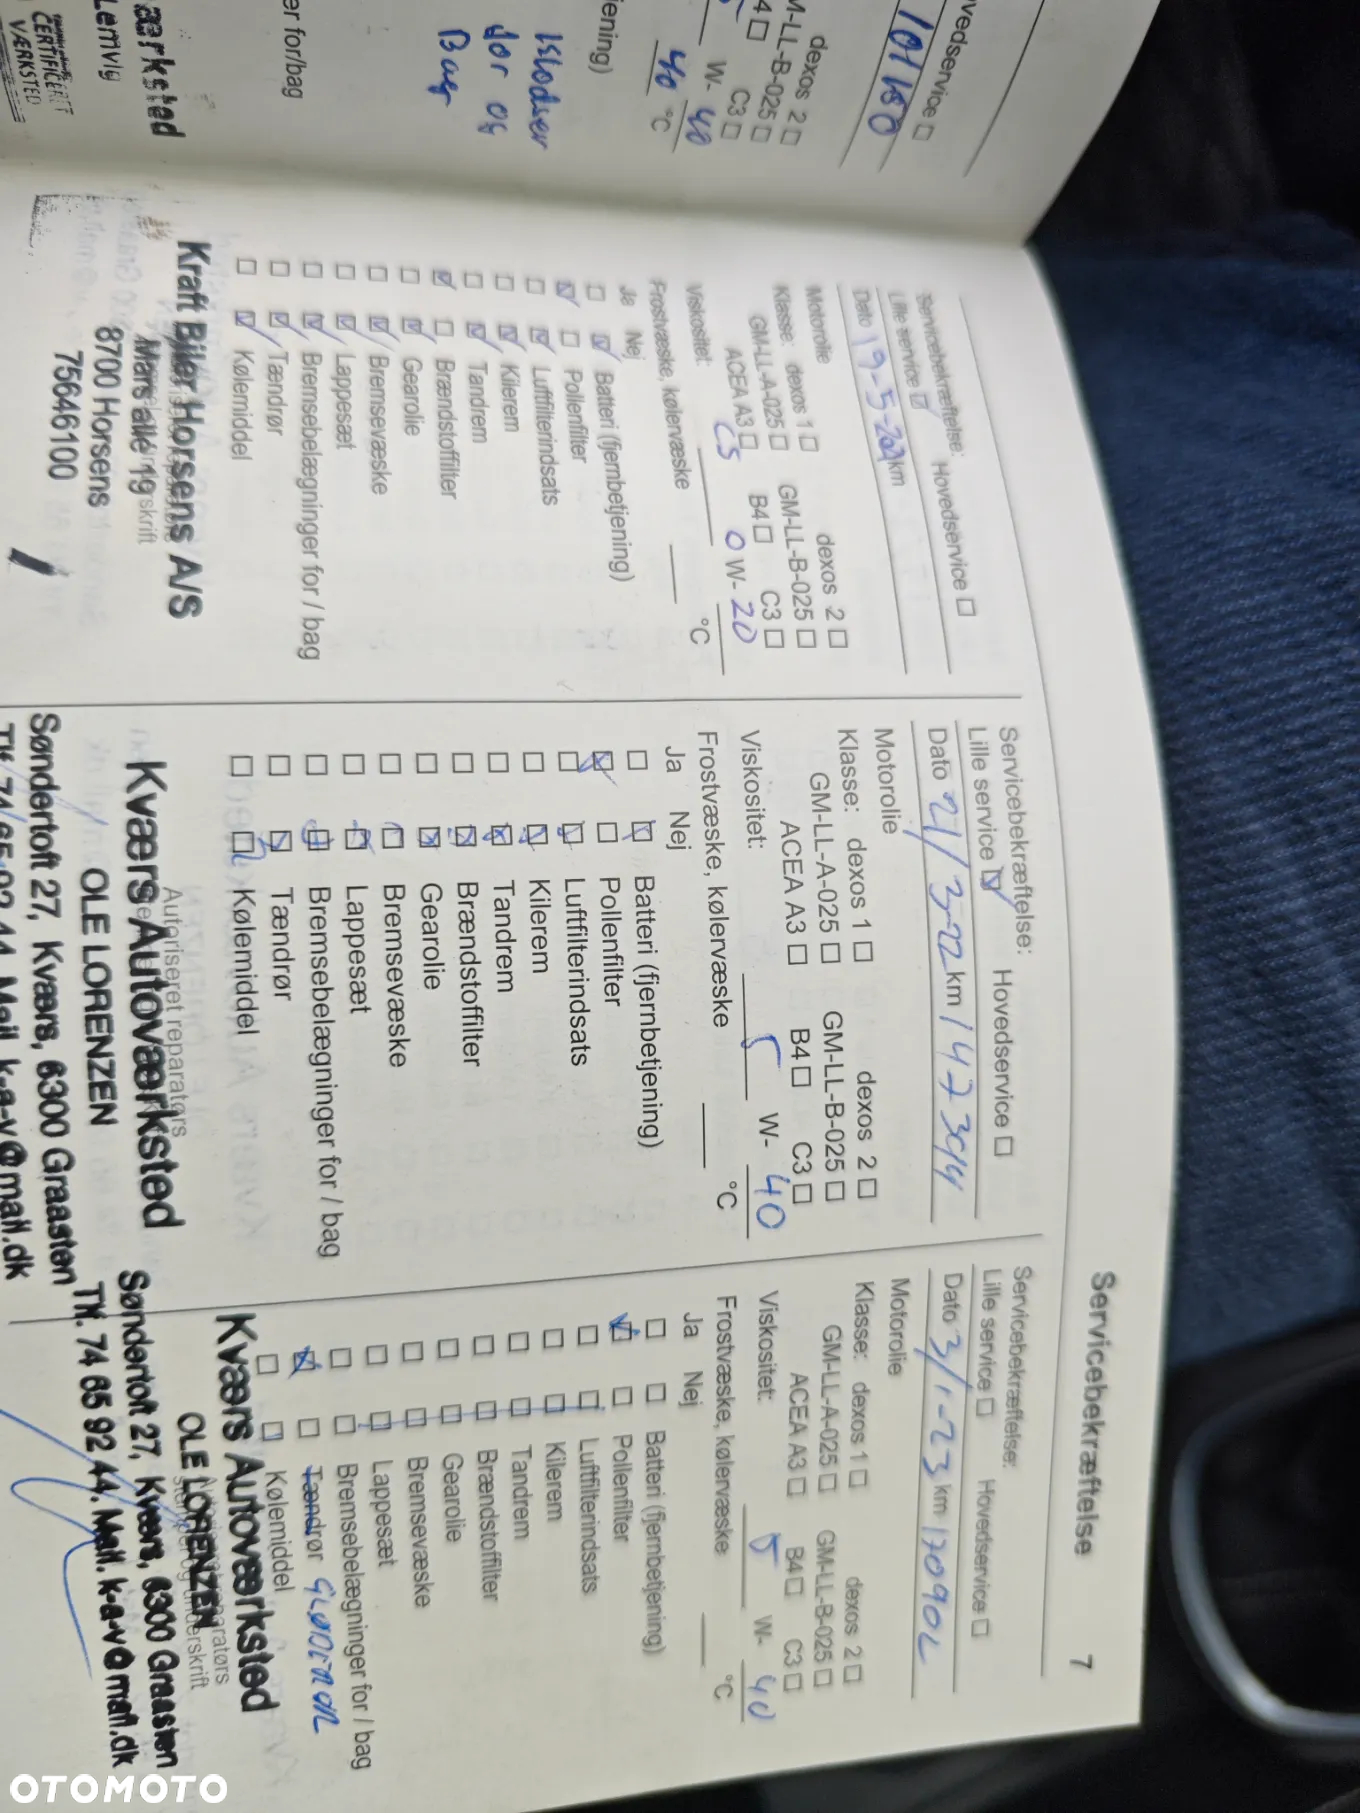 vedservice
101180
dexos 2
M-LL-B-025
C3
W- 40
40 °C
jening)
Klodser
for og
Bag
er for/bag
ærksted
Lemvig
CERTIFICERET
VÆRKSTED
Servicebekræftelse 7
Servicebekræftelse:
Lille service Hovedservice
Dato 19-5-2021 km
Motorolie
Klasse: dexos 1 dexos 2
GM-LL-A-025 GM-LL-B-025
ACEA A3 B4 C3
C5
Viskositet: 0 W- 20
Frostvæske, kølervæske °C
Ja Nej
Batteri (fjernbetjening)
Pollenfilter
Luftfilterindsats
Kilerem
Tandrem
Brændstoffilter
Gearolie
Bremsevæske
Lappesæt
Bremsebelægninger for / bag
Tændrør
Kølemiddel
Kraft Biler Horsens A/S
Mars alle 19
8700 Horsens
75646100
Servicebekræftelse:
Lille service Hovedservice
Dato 21/3-22 km 147344
Motorolie
Klasse: dexos 1 dexos 2
GM-LL-A-025 GM-LL-B-025
ACEA A3 B4 C3
Viskositet: 5 W- 40
Frostvæske, kølervæske °C
Ja Nej
Batteri (fjernbetjening)
Pollenfilter
Luftfilterindsats
Kilerem
Tandrem
Brændstoffilter
Gearolie
Bremsevæske
Lappesæt
Bremsebelægninger for / bag
Tændrør
Kølemiddel
Autoriseret reparatørs
Kværs Autoværksted
OLE LORENZEN
Søndertoft 27, Kværs, 6300 Graasten
Tlf. 74 65 92 44. Mail. k-a-v@mail.dk
Servicebekræftelse:
Lille service Hovedservice
Dato 3/1-23 km 170902
Motorolie
Klasse: dexos 1 dexos 2
GM-LL-A-025 GM-LL-B-025
ACEA A3 B4 C3
Viskositet: 5 W- 40
Frostvæske, kølervæske °C
Ja Nej
Batteri (fjernbetjening)
Pollenfilter
Luftfilterindsats
Kilerem
Tandrem
Brændstoffilter
Gearolie
Bremsevæske
Lappesæt
Bremsebelægninger for / bag
Tændrør GLØDERØR
Kølemiddel
Kværs Autoværksted
OLE LORENZEN
Søndertoft 27, Kværs, 6300 Graasten
Tlf. 74 65 92 44. Mail. k-a-v@mail.dk
OTOMOTO